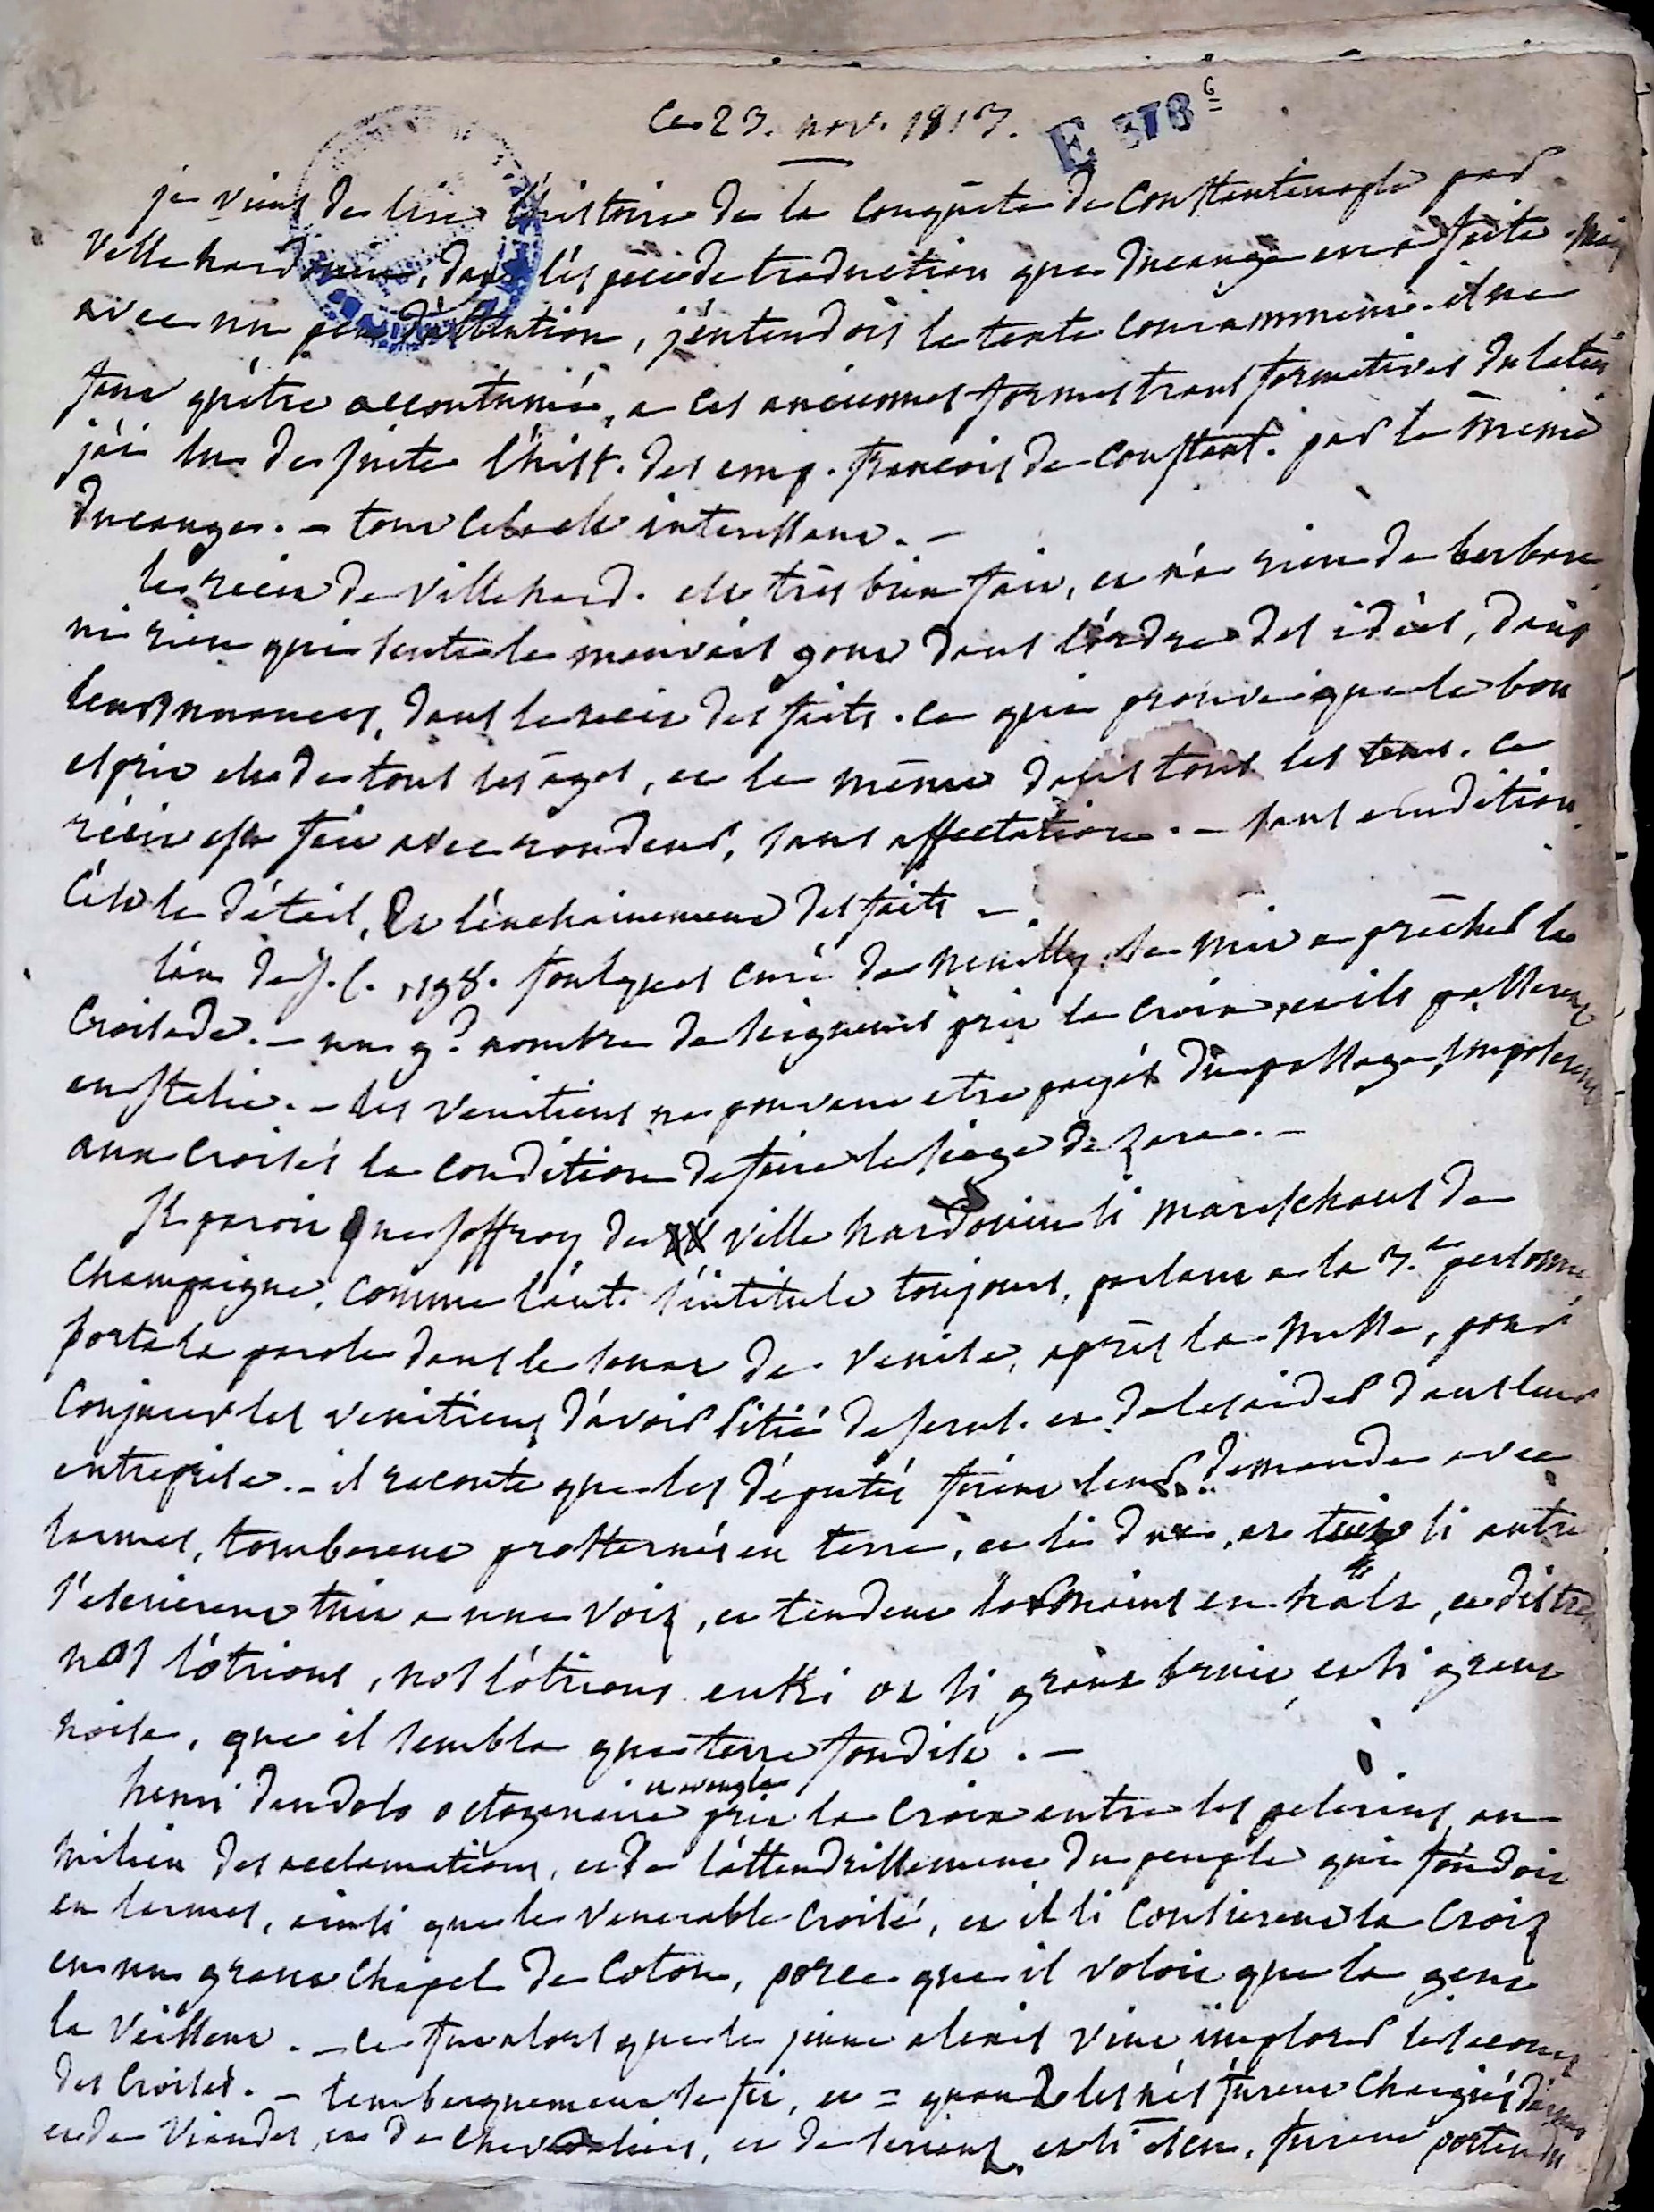 Ce 23. nov. 1813.
E 378 G
je viens de lire l'histoire de la conquête de Constantinople par
Villehardouin, dans l'espèce de traduction que Ducange en a faite. Mais
avec un peu d'attention, j'entendois le texte couramment. il ne
faut qu'être accoutumé, a ces anciennes formes transformatives du latin
j'ai lu de suite l'hist. des emp. francois de Constant. par le même
Ducange. - tout cela est interessant. -
le recit de Villehard. est très bien fait, et n'a rien de barbare
ni rien qui sente le mauvais gout dans l'ordre des idées, dans
leurs nuances, dans le recit des faits. ce qui prouve que le bon
esprit est de tous les ages, et le même dans tous les tems. ce
récit est fait avec rondeur, sans affectation. - sans erudition
c'est le détail, et l'enchainement des faits -
l'an de J. C. 1198. foulques curé de Neuilly se mit a prêcher la
Croisade. - un gd. nombre de seigneurs prit la croix, et ils passerent
en Italie. - les venitiens ne pouvant etre payés du passage, imposerent
aux Croisés la condition de faire le siege de Zara. -
Il paroit que Joffroy de Ville hardouin li mareschaus de
Champaigne, comme l'aut. s'intitule toujours, parlant a la 3.e personne,
porta la parole dans le senat de Venise, après la Messe, pour
conjurer les venitiens d'avoir pitié de Jerus. et de les aider dans leur
entreprise. - il raconte que les députés firent leur demande avec
larmes, tomberent prosternés en terre, et li dux, et tuit li autre
s'escrierent tuit a une voiz, et tendent les mains en halt, et distrent
nos l'otrions, nos l'otrions. enki ot si grant bruit, et si grant
noise, que il sembla que terre fondist. -
henri dandolo octogenaire et aveugle prit la croix entre les pelerins, au
milieu des acclamations, et de l'attendrissement du peuple qui fondoit
en larmes, ainsi que le venerable croisé, et il li cousirent la Croiz
en un grant chapel de coton, porce que il voloit que la gent
la veissent. - ce fut alors que le jeune alexis vint implorer le secours
des Croisés. - l'embarquement se fit, et = quand les nés furent chargiés d'armes
et de viandes, et de chevaliers, et de serianz, et li escu, furent portendu